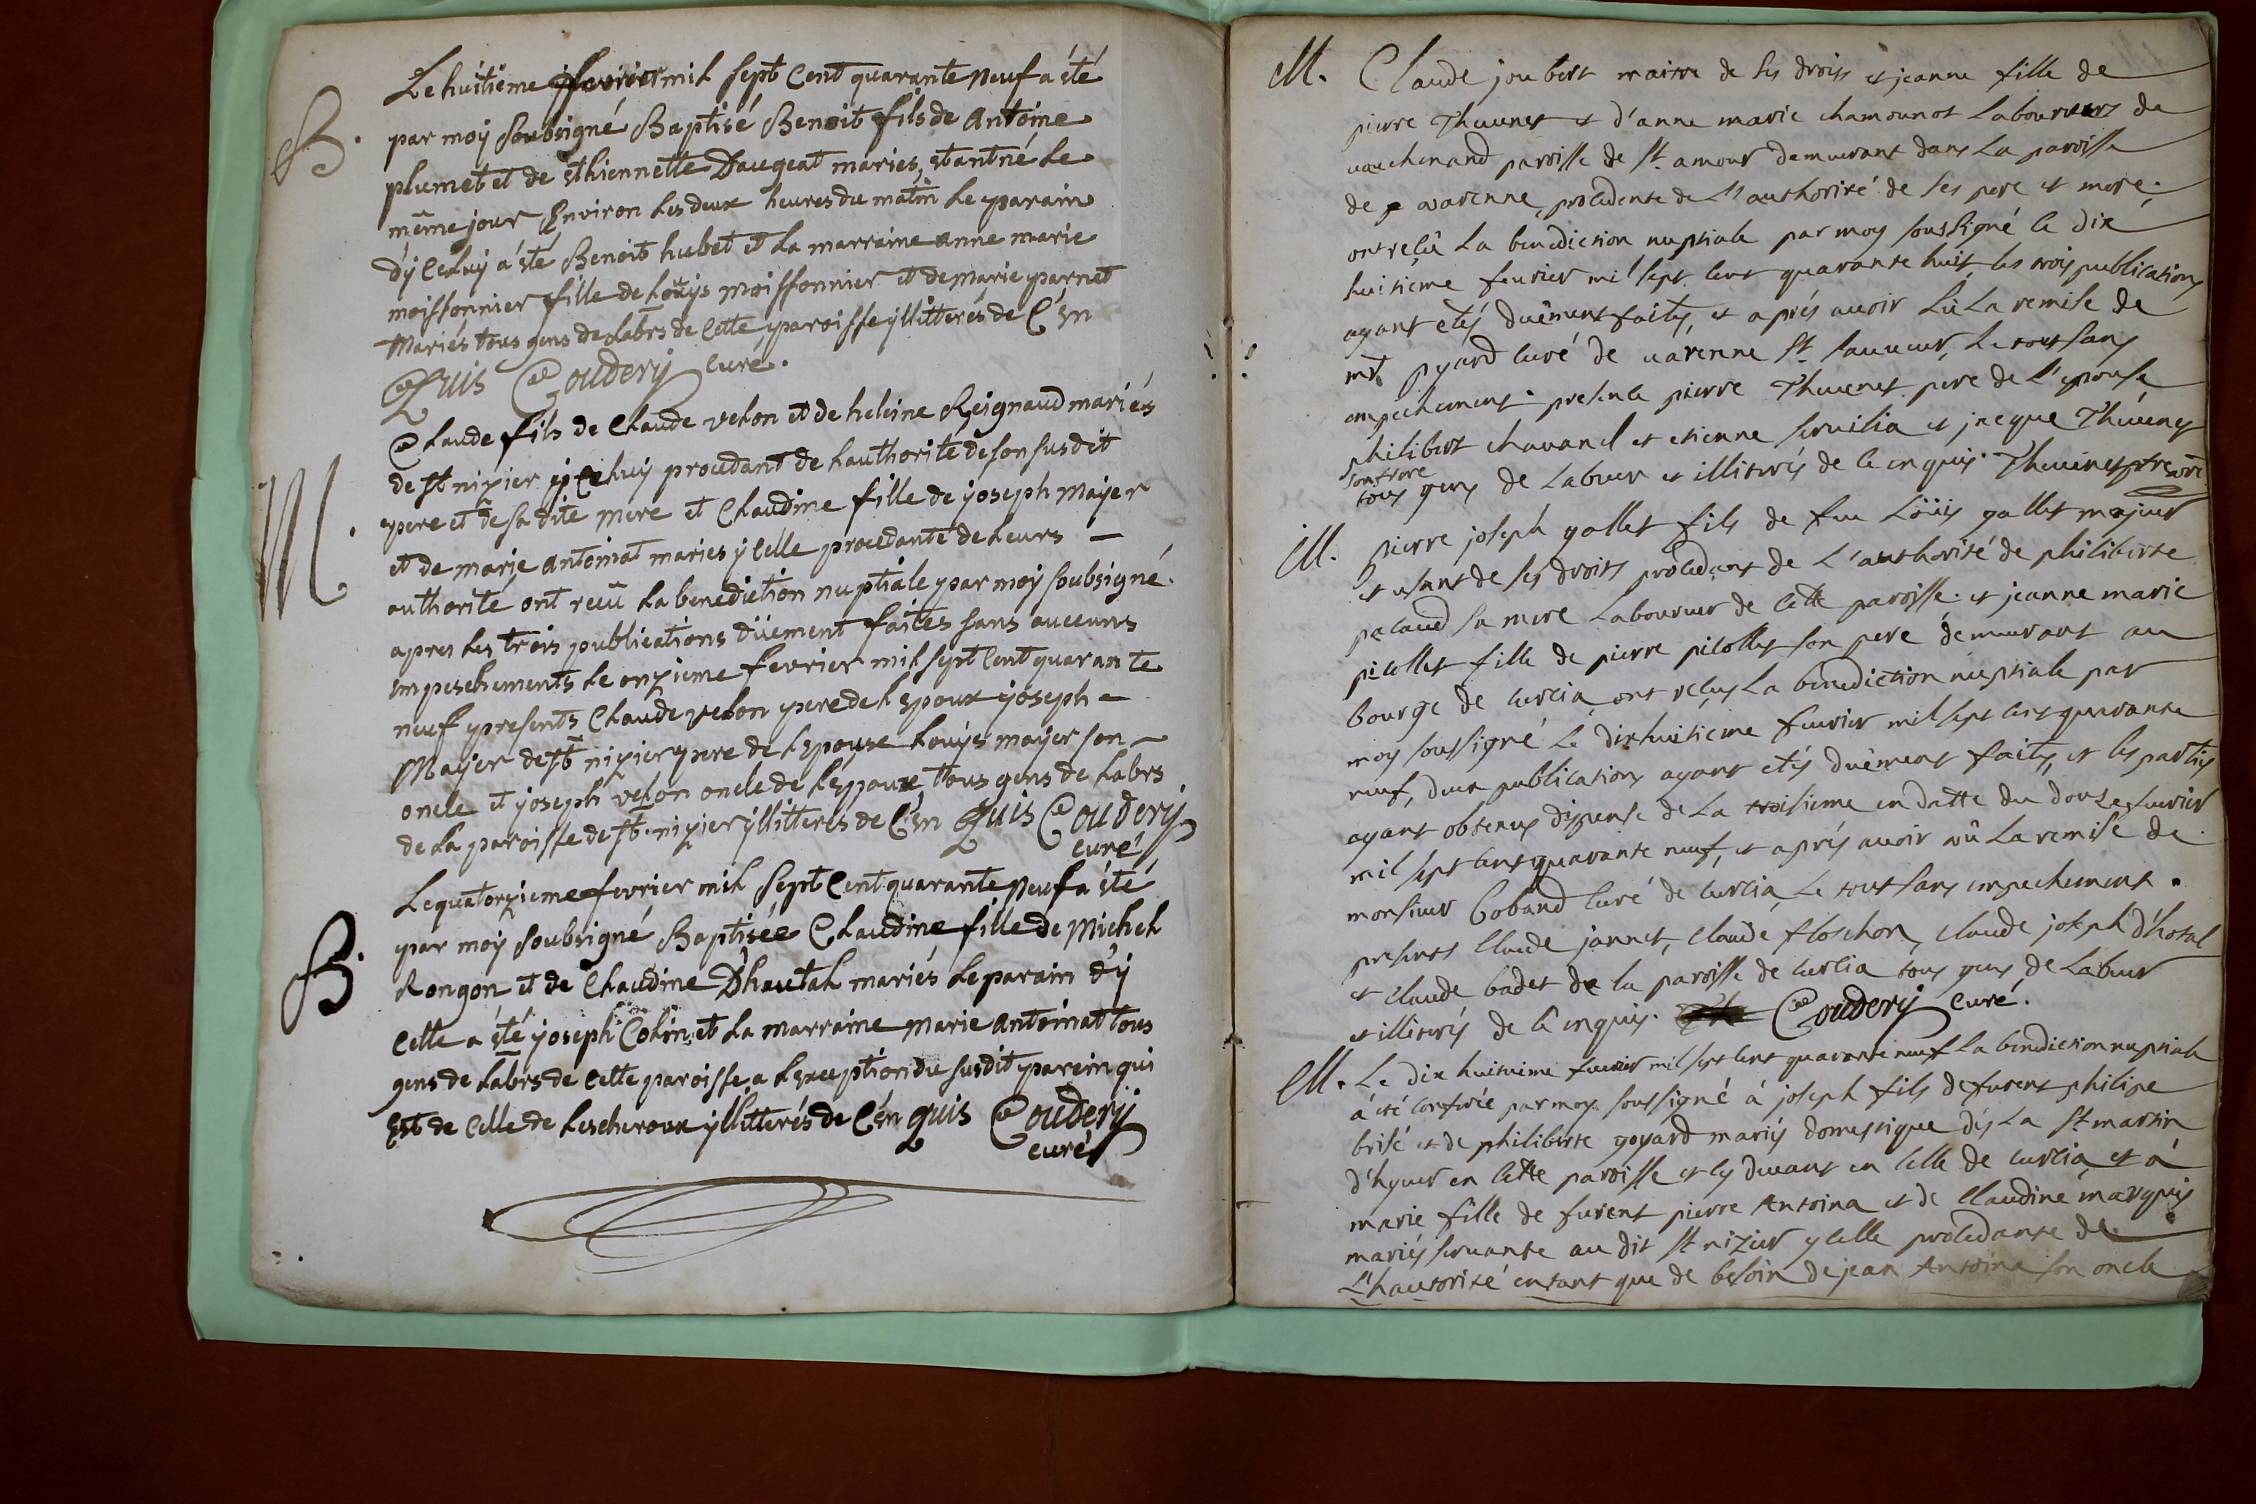 Le huitiême fevrier mil sept Cent quarante neuf a êté
B. par moÿ soubsigné Baptisé Benoit fils de Antoine
plumet et de êthiennette Daugeat maries, êtant né le
même jour Environ les deux heures du matin le parain
d'ÿ Celuÿ a êté Benoit hubet et la marraine anne marie
moissonnier fille de Louÿs moissonnier et de marie parnet
Mariés tous gens de Labrs de Cette paroisse ÿllitterés de C'en
Quis Couderÿ curé.
M. Claude fils de Claude velon et de heleine Reignaud mariés
de st nizier ÿ Celuÿ procedant de l'authorite de son susdit
pere et de sa dite mere et Claudine fille de joseph Mayer
et de marie antoinat maries ÿ celle procedante de leurs
authorité ont reçû la benediction nuptiale par moÿ soubsigné
apres les trois publications dûement faites sans auccuns
empeschements le onzieme fevrier mil sept Cent quarante
neuf presents Claude velon pere de l'epoux joseph
Mayer de st nizier pere de l'epouse Louÿs mayer son
oncle et joseph velon oncle de l'epoux tous gens de labrs
de la paroisse de st. nizier ÿllitterés de C'en Quis Couderÿ
curé
Le quatorzieme fevrier mil Sept Cent quarante neuf a êté
par moÿ soubsigné Baptisée Claudine fille de Michel
B. Rongon et de Claudine Dhautal mariés le parain d'ÿ
Celle a êté joseph Colin et la marraine Marie antoinat tous
gens de labrs de Cette paroisse a l'exception du susdit parein qui
Est de Celle de Lescheroux ÿllitterés de C'en quis Couderÿ
curé
M. Claude joubert maitre de ses droits et jeanne fille de
pierre Thuvenet et d'anne marie chamounot Laboureurs de
vouchenand paroisse de st. amour demeurant dans La paroisse
de varenne, procedente de L'authorité de ses pere et mere.
ont reçû La benediction nuptiale par moy soussigné le dix
huitieme feurier mil sept cent quarante huit, les trois publications
ayant etés duëment faites, et aprés auoir Lû La remise de
mr. pyard curé de uarenne st sauueur, Le tout sans
empechement. presence pierre Thuvenet pere de L'epouse
philibert chauanel et etienne seruilia et jacque Thuvenet
son frere
tous gens de Labeur et illiterés de ce enquis. Thuvenet
M. pierre joseph gallet fils de feu Loüis gallet majeur
et usant de ses droits procedant de L'authorité de philiberte
pacaud sa mere Laboureur de cette paroisse. et jeanne marie
picollet fille de pierre picollet son pere demeurant au
bourge de curcia, ont reçus La benediction nuptiale par
moy soussigné Le dixhuitieme feurier mil sept cent quarante
neuf, deux publications ayant etés duëment faites, et les parties
ayant obtenus dispense de La troisieme en datte du douze feurier
mil sept cent quarante neuf, et aprés auoir uû La remise de
monsieur Coband curé de curcia, Le tout sans empechement.
presents claude jannet, claude flochon, claude joseph d'hotal
et claude badet de la paroisse de curcia tous gens de Labeur
et illiterés de ce enquis. Couderÿ Curé.
M. Le dix huitieme feurier mil sept cent quarante neuf La benediction nuptiale
à été conferée par moy soussigné à joseph fils defurent philipe
brisé et de philiberte goyard mariés domestique dés La st martin
d'hyuer en cette paroisse et cy deuant en celle de curcia et à
marie fille de furent pierre Antoina et de claudine marquis
mariés seruante au dit st nizier ycelle procedante de
L'hautorité entant que de besoin de jean Antoina son oncle